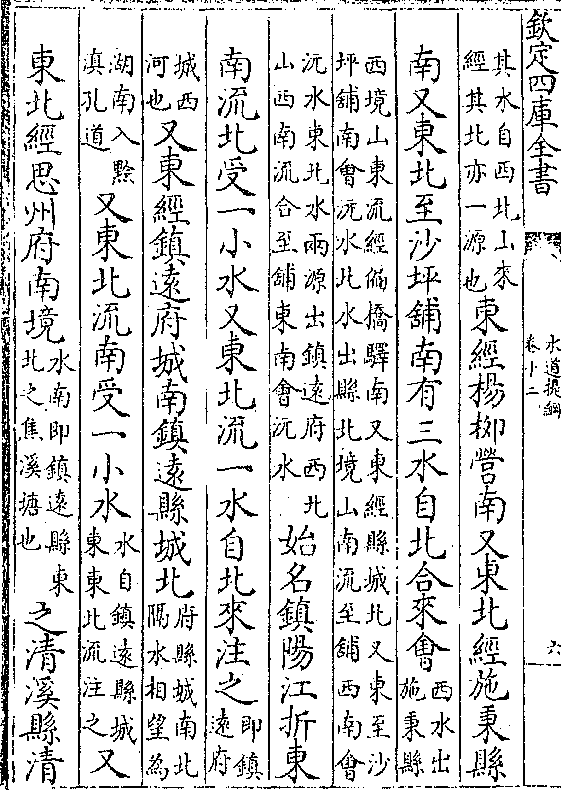 欽定四庫全書
水道提綱
卷十二
六
其水自西北山來
經其北亦一源也
東經楊柳營南又東北經施秉縣
南又東北至沙坪舖南有三水自北合來會
西水出
施秉縣
西境山東流經偏橋驛南又東經縣城北又東至沙
坪舖南會沅水北水出縣北境山南流至舖西南會
沅水東北水兩源出鎮遠府西北
山西南流合至舖東南會沅水
始名鎮陽江折東
南流北受一小水又東北流一水自北來注之
即鎮
遠府
城西
河也
又東經鎮遠府城南鎮遠縣城北
府縣城南北
隔水相望為
湖南入黔
滇孔道
又東北流南受一小水
水自鎮遠縣城
東東北流注之
又
東北經思州府南境
水南即鎮遠縣東
北之焦溪塘也
之清溪縣清